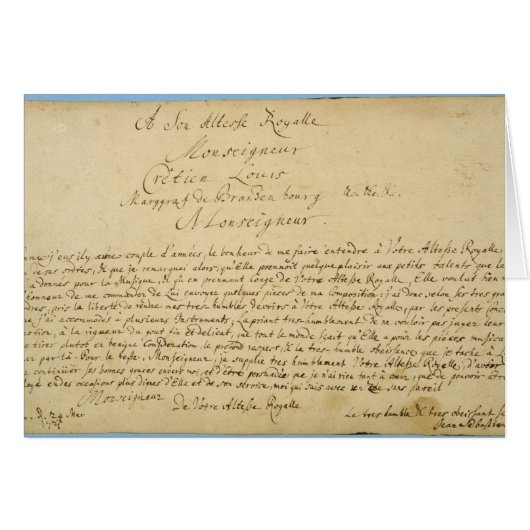 A Son Altesse Royalle
Monseigneur
Crêtien Louis
Marggraf de Brandenbourg &c. &c. &c.
Monseigneur.
j'eus il y a une couple d'années, le bonheur de me faire entendre à Votre Altesse Royalle
de ses ordres, & que je remarquai alors, qu'Elle prennoit quelque plaisir aux petits talents que le
a donnés pour la Musique, & qu'en prennant Conge de Votre Altesse Royalle, Elle voulut bien
honneur de me commander de Lui envoyer quelques pieces de ma Composition: j'ai donc selon ses tres gra
ordres, pris la liberté de rendre mes tres-humbles devoirs à Votre Altesse Royalle, par les presents Conce
que j'ai accommodés à plusieurs Instruments; La priant tres-humblement de ne vouloir pas juger leur
à la rigueur du gout fin et delicat, que tout le monde sçait qu'Elle a pour les piéces musica
de tirer plutot en benigne Consideration, le profond respect, & la tres-humble obeissance que je tache à L
par là. Pour le reste, Monseigneur, je suplie tres humblement Votre Altesse Royalle, d'avoir
continüer ses bonnes graces envers moi, et d'être persuadée que je n'ai rien tant à cœur, que de pouvoir êtr
employé en des occasions plus dignes d'Elle et de son service, moi qui suis avec un zele sans pareil
Monseigneur
De Votre Altesse Royalle
d. 24 Mar
1721
Le tres humble & tres obeissant se
Jean Sebastian